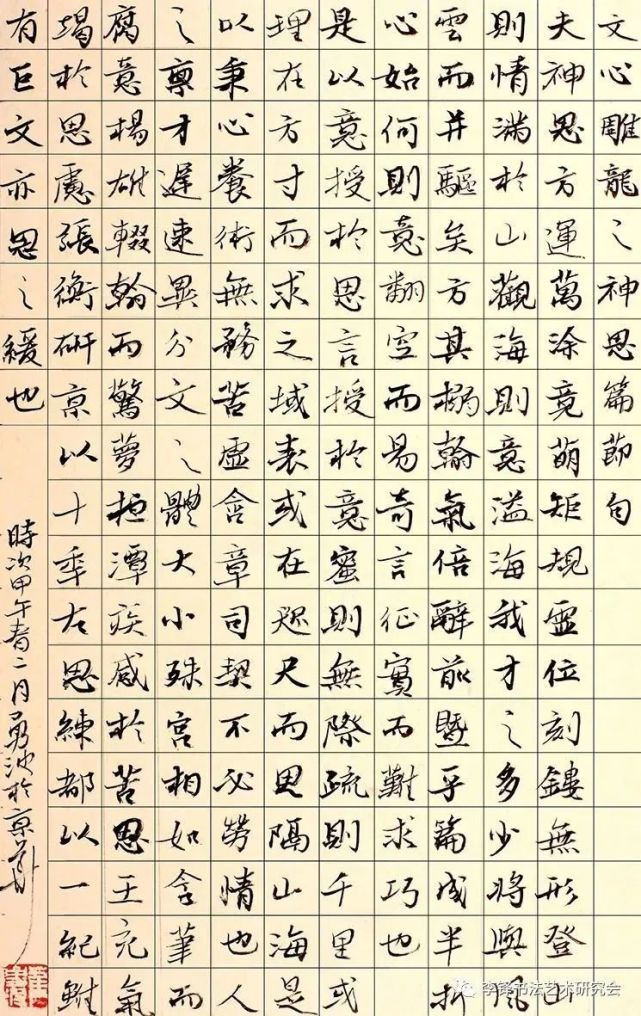 文心雕龍之神思篇節句
夫神思方運萬涂竟萌矩規虛位刻鏤無形登山
則情滿於山觀海則意溢海我才之多少將與風
雲而并驅矣方其搦翰氣倍辭前暨乎篇成半折
心始何則意翻空而易奇言征實而難求巧也
是以意授於思言授於意蜜則無際疏則千里或
理在方寸而求之域表或在咫尺而思隔山海是
以秉心養術無務苦慮含章司契不必勞情也人
之稟才遲速異分文之體大小殊宮相如含筆而
腐意楊雄輟翰而驚夢桓潭疾感於苦思王充氣
竭於思慮張衡研京以十年左思練都以一紀雖
有巨文亦思之緩也
時次甲午春二月勇波於京華
李铎书法艺术研究会